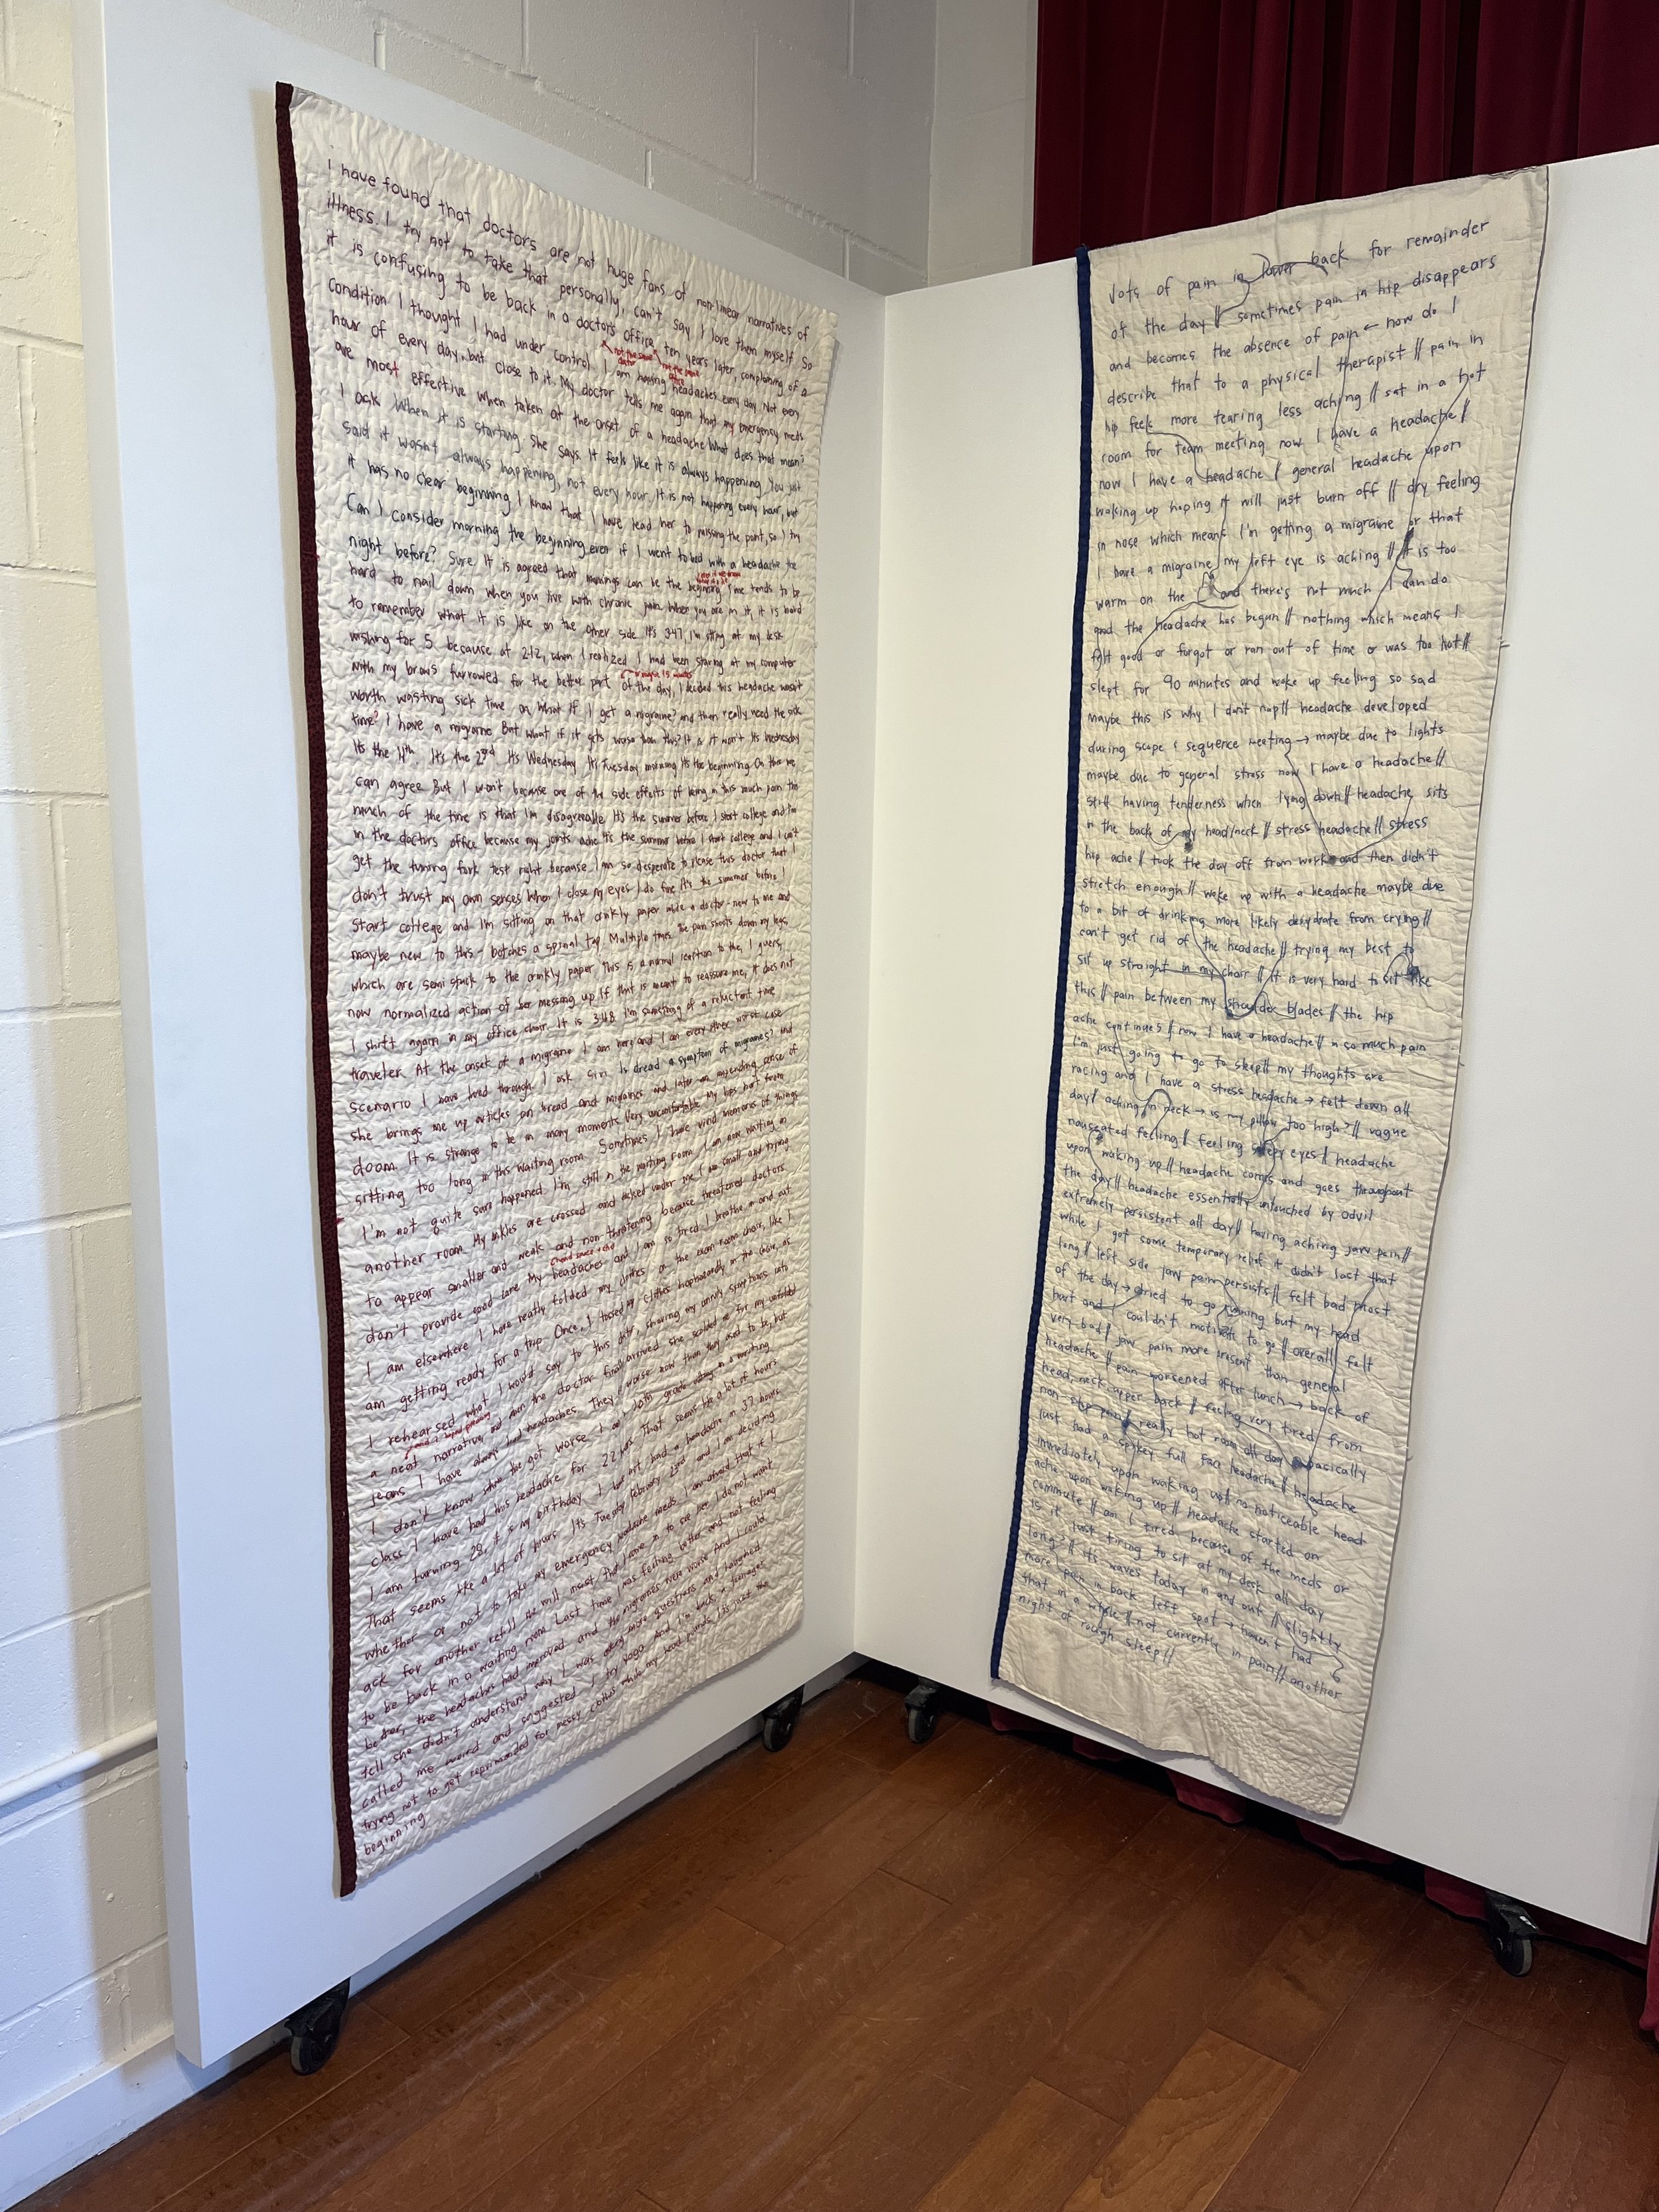 I have found that doctors are not huge fans of non-linear narratives of
illness. I try not to take that personally, can't say I love them myself. So
it is confusing to be back in a doctor's office ten years later, complaining of a
condition I thought I had under control. I am having headaches every day. Not every
not the same
hour of every day, but close to it. My doctor tells me again that my emergency meds
are most effective when taken at the onset of a headache. What does that mean?
I ask. When it is starting she says. It feels like it is always happening. You just
said it wasn't always happening, not every hour. It is not happening every hour, but
it has no clear beginning. I know that I have lead her to missing the point, so I try
Can I consider morning the beginning even if I went to bed with a headache the
night before? Sure. It is agreed that mornings can be the beginning. Time tends to be
hard to nail down when you live with chronic pain. When you are in it, it is hard
to remember what it is like on the other side. It's 3:47, I'm sitting at my desk
wishing for 5 because at 2:12, when I realized I had been staring at my computer
with my brows furrowed for the better part of the day, I decided this headache wasn't
worth wasting sick time on. What if I get a migraine? and then really need the sick
time? I have a migraine. But what if it gets worse than this? It is. It won't. It's Wednesday
It's the 11th. It's the 2nd. It's Wednesday. It's Tuesday morning. It's the beginning. On this we
can agree. But I won't because one of the side effects of being in this much pain this
much of the time is that I'm disagreeable. It's the summer before I start college and I'm
in the doctor's office because my joints ache. It's the summer before I start college and I can't
get the tuning fork test right because I am so desperate to please this doctor that I
don't trust my own senses. When I close my eyes I do fine. It's the summer before I
start college and I'm sitting on that crinkly paper while a doctor - new to me and
maybe new to this - botches a spinal tap. Multiple times. The pain shoots down my legs,
which are semi stuck to the crinkly paper. This is a normal reaction to the, I guess,
now normalized action of her messing up. If that is meant to reassure me, it does not
I shift again in my office chair. It is 3:48. I'm something of a reluctant time
traveler. At the onset of a migraine I am here and I am every other worst case
scenario I have lived through. I ask Siri Is dread a symptom of migraines? and
she brings me up articles on bread and migraines and later an impending sense of
doom. It is strange to be in many moments. Very uncomfortable. My lips part from
sitting too long in this waiting room. Sometimes I have vivid memories of things
I'm not quite sure happened. I'm still in the waiting room. I am now waiting in
another room. My ankles are crossed and tucked under me. I am small and trying
to appear smaller and weak and non-threatening because threatened doctors
don't provide good care. My headaches and I am so tired. I breathe in and out.
I am elsewhere. I have neatly folded my clothes on the exam room chair, like I
am getting ready for a trip. Once, I tossed my clothes haphazardly on the chair, as
I rehearsed what I would say to this doctor, shoving my unruly symptoms into
a neat narrative, and when the doctor finally arrived she scolded me for my unfolded
jeans. I have always had headaches. They're worse now than they used to be, but
I don't know when they got worse. I am in 10th grade sitting in a writing
class. I have had this headache for 22 hours. That seems like a lot of hours
I am turning 28, it is my birthday. I have not had a headache in 37 hours.
That seems like a lot of hours. It's Tuesday February 23rd and I am deciding
whether or not to take my emergency migraine meds. I am afraid that if I
ask for another refill she will insist that I come in to see her. I do not want
to be back in a waiting room. Last time I was feeling better and not feeling
better, the headaches had improved and the migraines were worse. And I could
tell she didn't understand why. I was asking more questions and laughed
called me weird and suggested I try yoga. And I'm back, a teenager
trying not to get reprimanded for messy clothes while my head pounds. It's just the
beginning
lots of pain in lower back for remainder
of the day // sometimes pain in hip disappears
and becomes the absence of pain ← how do I
describe that to a physical therapist // pain in
hip feels more tearing less aching // sat in a hot
room for team meeting now I have a headache //
now I have a headache // general headache upon
waking up hoping it will just burn off // dry feeling
in nose which means I'm getting a migraine or that
I have a migraine // my left eye is aching // it is too
warm on the and there's not much I can do
good the headache has begun // nothing which means I
felt good or forgot or ran out of time or was too hot //
slept for 90 minutes and woke up feeling so sad
maybe this is why I don't nap // headache developed
during scope & sequence meeting → maybe due to lights
maybe due to general stress now I have a headache //
still having tenderness when lying down // headache sits
in the back of my head/neck // stress headache // stress
hip ache // took the day off from work and then didn't
stretch enough // woke up with a headache maybe due
to a bit of drinking more likely dehydrate from crying //
can't get rid of the headache // trying my best to
sit up straight in my chair // it is very hard to sit like
this // pain between my shoulder blades // the hip
ache continues // now I have a headache // in so much pain
I'm just going to go to sleep // my thoughts are
racing and I have a stress headache → felt down all
day // aching in neck → is my pillow too high? // vague
nauseated feeling // feeling sleepy eyes // headache
upon waking up // headache comes and goes throughout
the day // headache essentially untouched by advil
extremely persistent all day // having aching jaw pain //
while I got some temporary relief it didn't last that
long // left side jaw pain persists // felt bad most
of the day → tried to go running but my head
hurt and I couldn't motivate to go // overall felt
very bad // jaw pain more present than general
headache // pain worsened after lunch → back of
head, neck, upper back // feeling very tired from
non-stop pain // really hot room all day basically
just had a spikey full face headache // headache
immediately upon waking up // no noticeable head
ache upon waking up // headache started on
commute // am I tired because of the meds or
is it just tiring to sit at my desk all day
long? // it's waves today in and out // slightly
more pain in back left spot → haven't had
that in a while // not currently in pain // another
night of rough sleep //